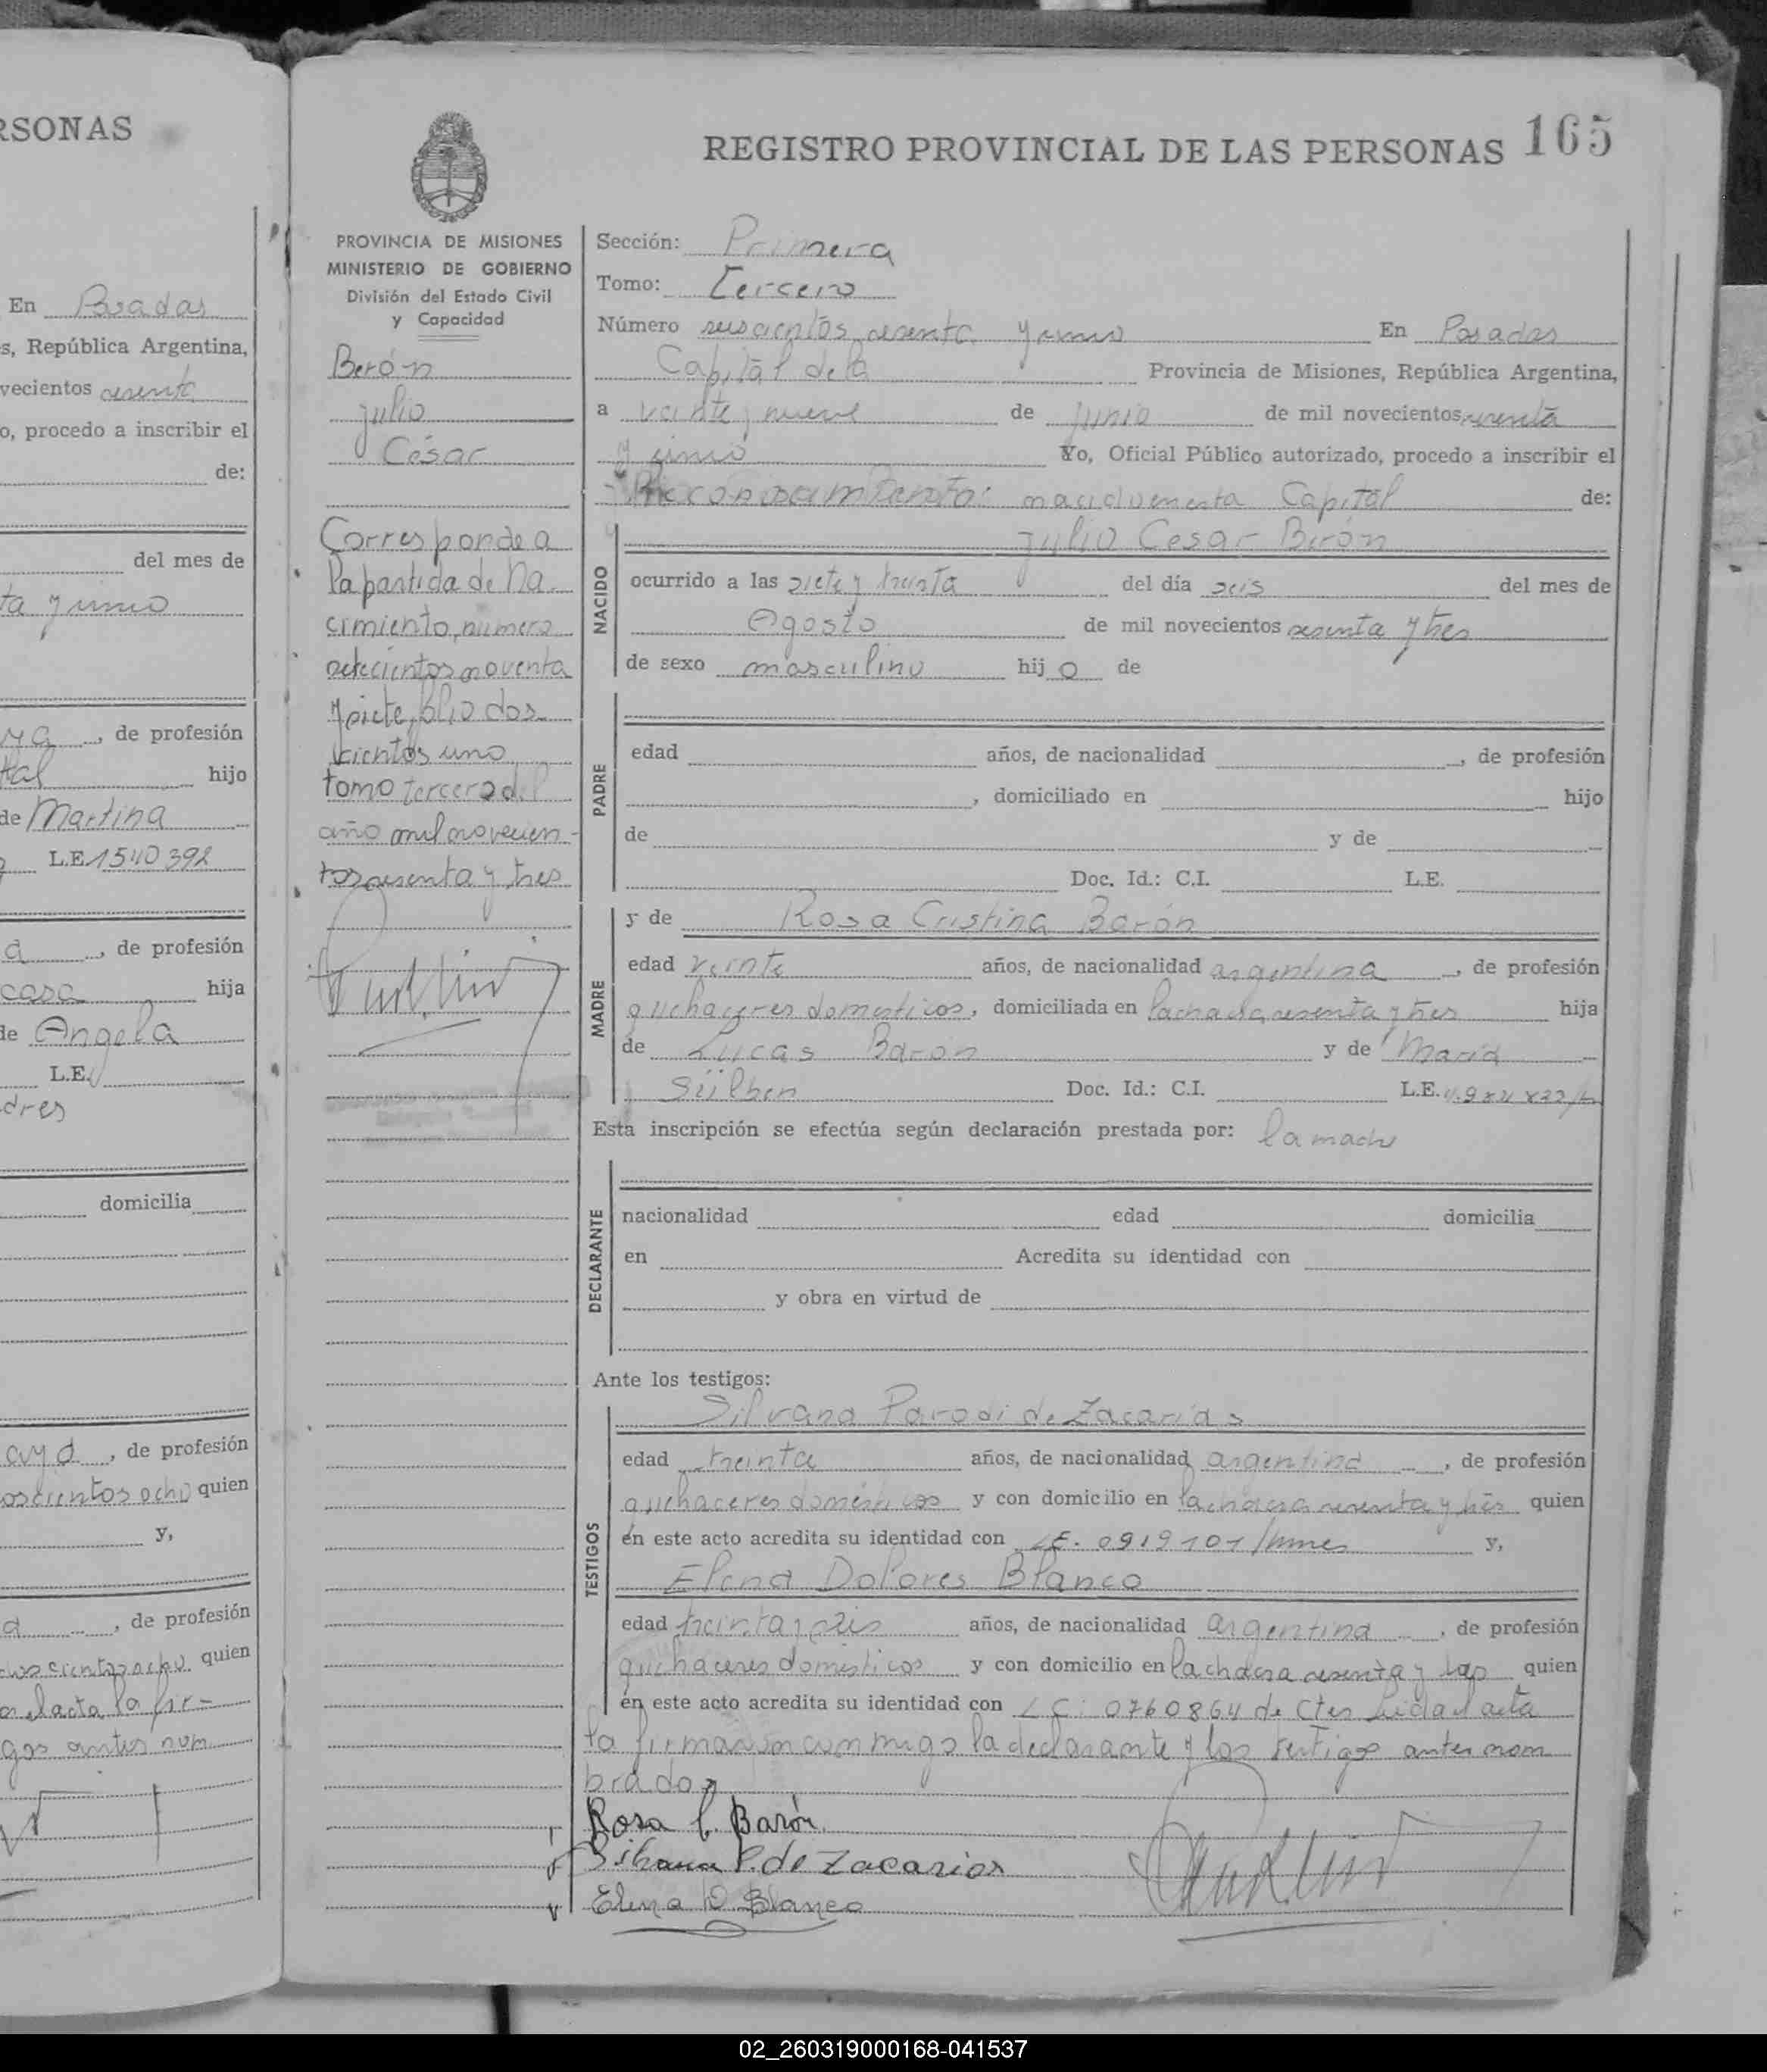 RSONAS
En Posadas
s, República Argentina,
vecientos
o, procedo a inscribir el
de:
del mes de
ta y cinco
ya, de profesión
tal hijo
de Martina
L.E. 1540392
a, de profesión
casa hija
de Angela
L.E.
dres
domicilia
aya, de profesión
oscientos ocho quien
y,
a, de profesión
quien
el acta la fir-
gos antes nom
165
REGISTRO PROVINCIAL DE LAS PERSONAS
PROVINCIA DE MISIONES
MINISTERIO DE GOBIERNO
División del Estado Civil
y Capacidad
Berón
Julio
César
Corresponde a
la partida de na-
cimiento, número
setecientos noventa
y siete, folio dos-
cientos uno
tomo tercero del
año mil novecien-
tos sesenta y tres
Sección: Primera
Tomo: Tercero
Número seiscientos sesenta y cinco En Posadas
Capital de la Provincia de Misiones, República Argentina,
a veinte y nueve de Junio de mil novecientos sesenta
y cinco Yo, Oficial Público autorizado, procedo a inscribir el
Reconocimiento: Capital de:
Julio Cesar Berón
NACIDO
ocurrido a las siete y treinta del día seis del mes de
Agosto de mil novecientos sesenta y tres
de sexo masculino hijo de
PADRE
edad años, de nacionalidad , de profesión
, domiciliado en hijo
de y de
Doc. Id.: C.I. L.E.
MADRE
y de Rosa Cristina Barón
edad veinte años, de nacionalidad argentina, de profesión
quehaceres domesticos, domiciliada en la chacra sesenta y tres hija
de Lucas Barón y de María
Doc. Id.: C.I. L.E.
Esta inscripción se efectúa según declaración prestada por: la madre
DECLARANTE
nacionalidad edad domicilia
en Acredita su identidad con
y obra en virtud de
Ante los testigos:
TESTIGOS
Silvana Parodi de Zacarías
edad treinta años, de nacionalidad argentina, de profesión
quehaceres domésticos y con domicilio en la chacra sesenta y tres quien
en este acto acredita su identidad con L.E. 0919101 y,
Elena Dolores Blanco
edad treinta y seis años, de nacionalidad argentina, de profesión
quehaceres domésticos y con domicilio en la chacra sesenta y tres quien
en este acto acredita su identidad con L C: 0760864 de Ctes Leida el acta
la firmaron conmigo la declarante y los testigos antes nom
brados
Rosa C. Barón.
Silvana P. de Zacarias
Elena D Blanco
02_260319000168-041537